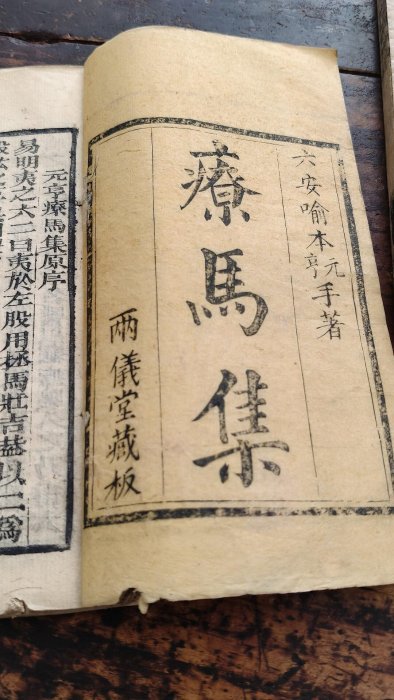 六安喻本元亨手著
療馬集
兩儀堂藏板
元亨療馬集原序
易明夷之六二曰夷於左股用拯馬壯吉葢以二爲